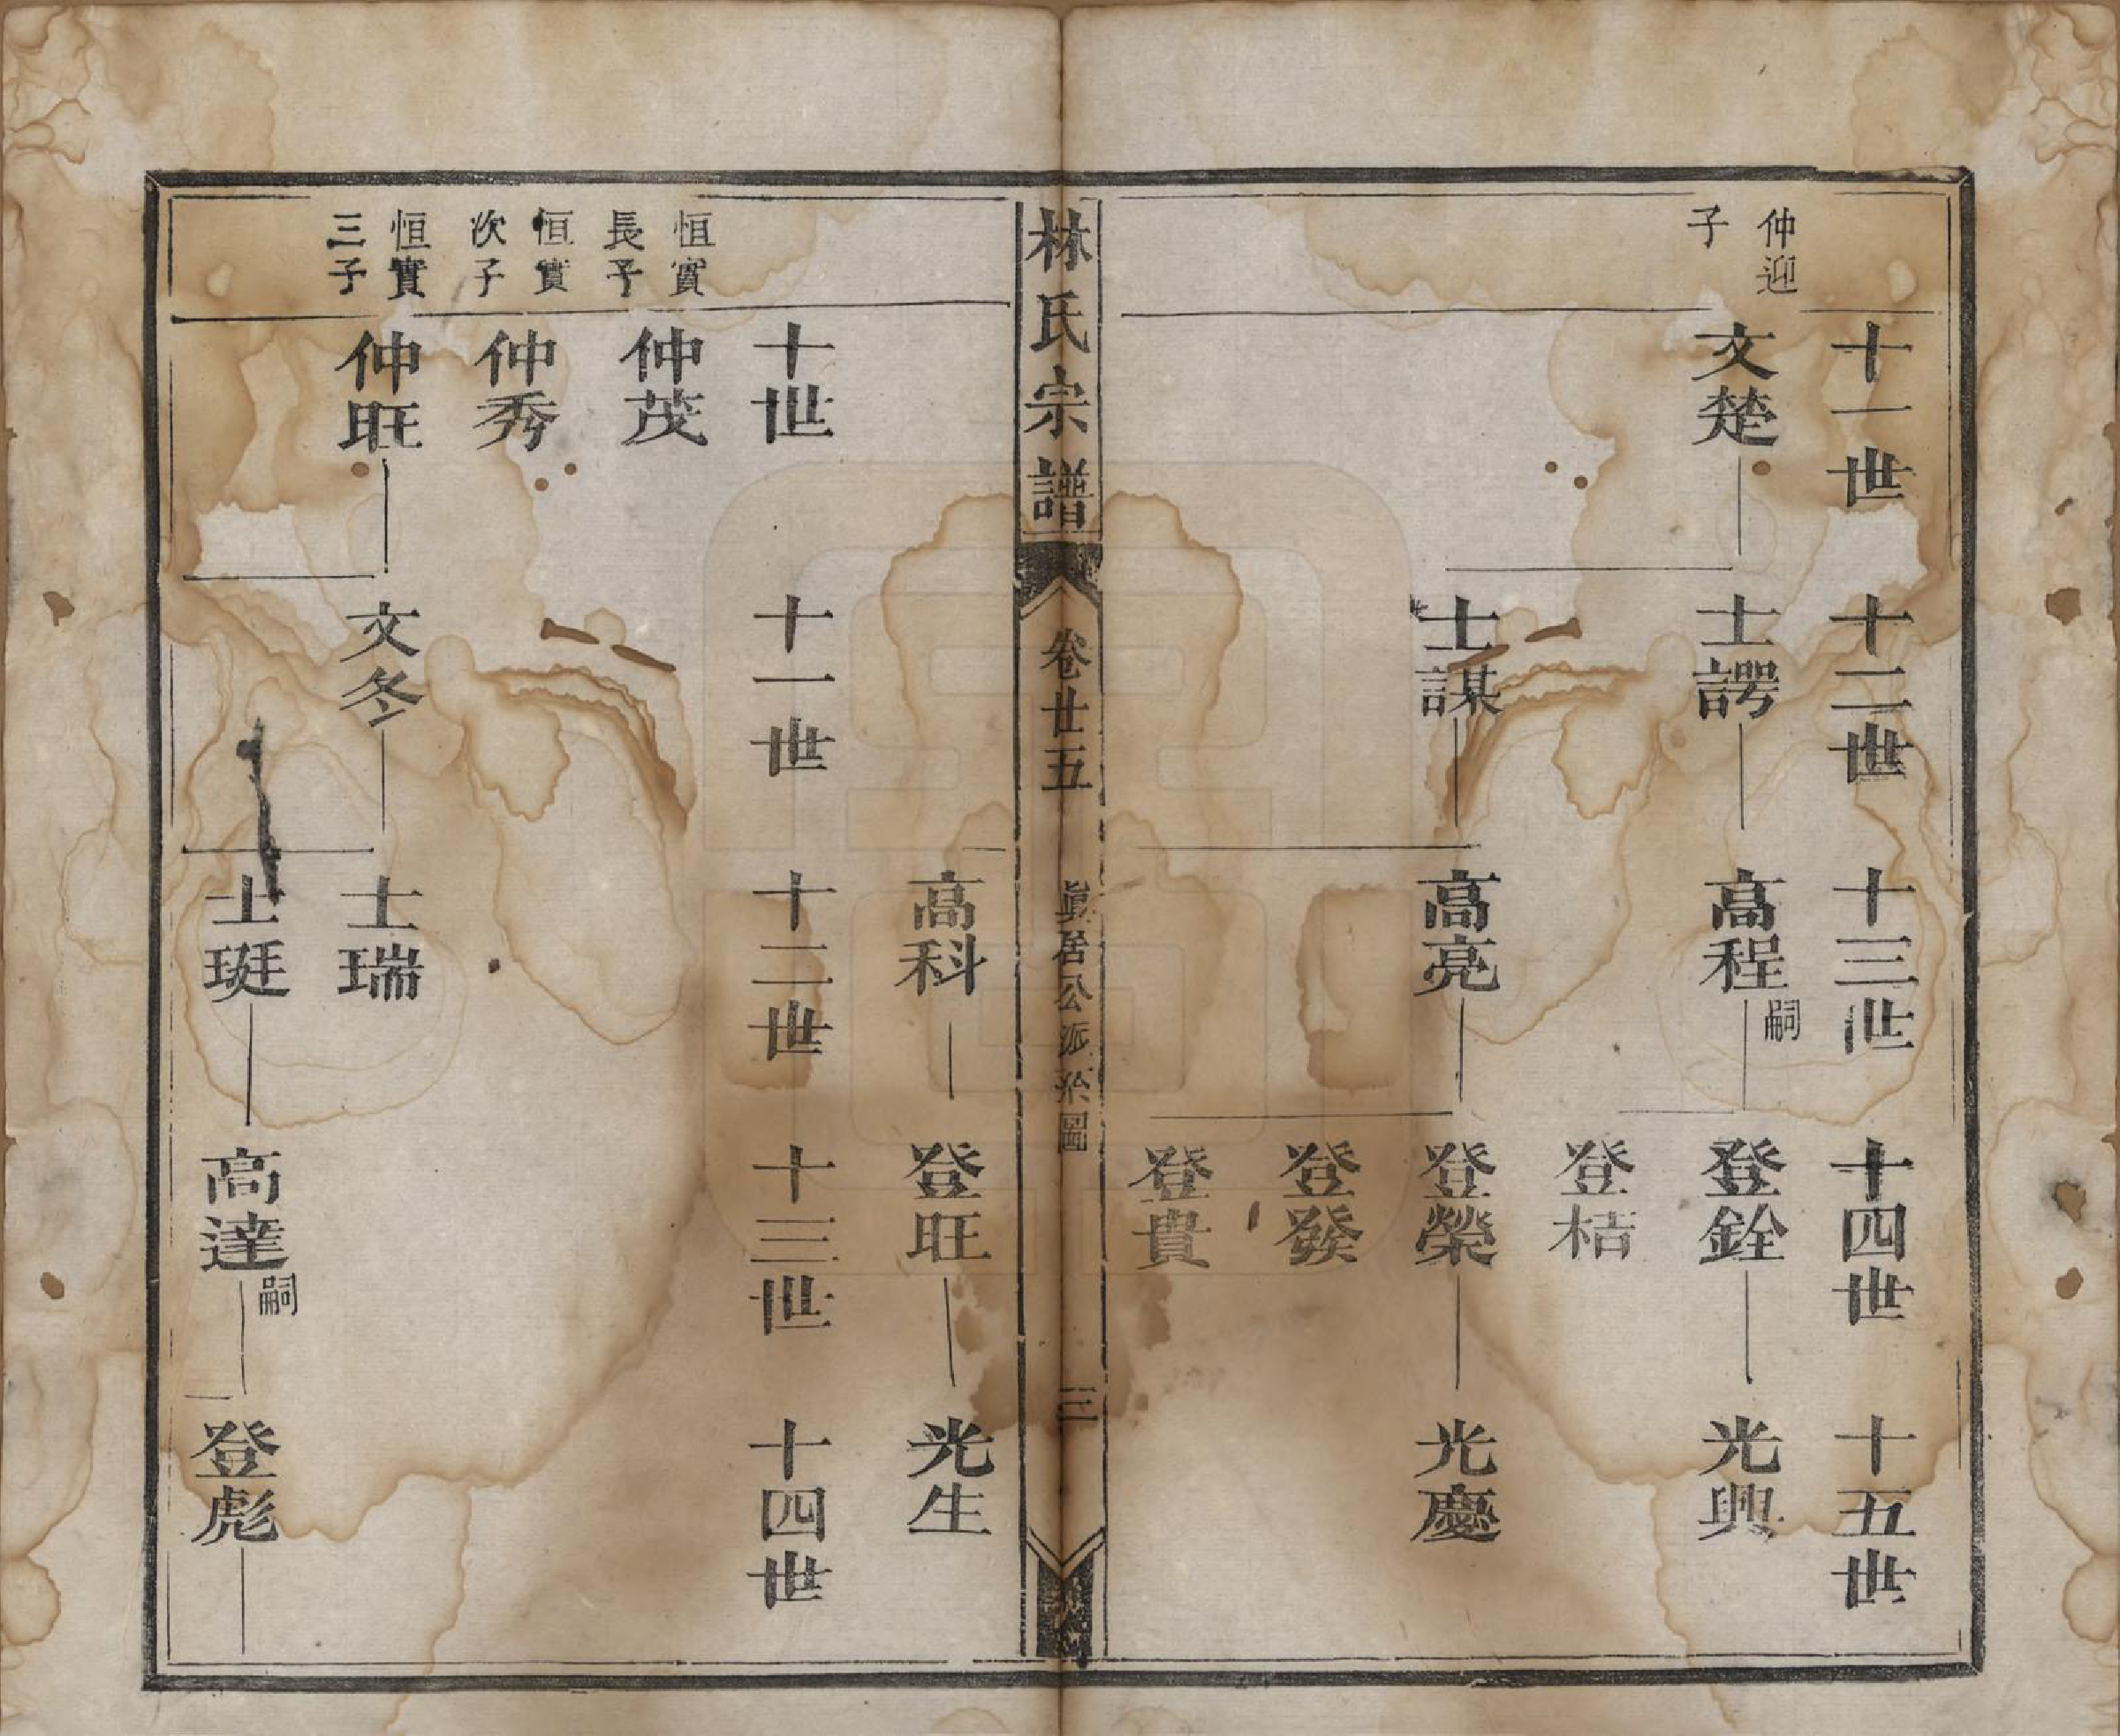 仲迎
子
十一世
十二世
十三世
十四世
十五世
文楚
士諤
高程
嗣
登銓
光興
登桔
士謀
高亮
登榮
光慶
登發
登貴
林氏宗譜
卷廿五
眞居公派系圖
三
高科
登旺
光生
十世
十一世
十二世
十三世
十四世
恒實
長子
仲茂
恒實
次子
仲秀
恒實
三子
仲旺
文冬
士瑞
士珽
高達
嗣
登彪